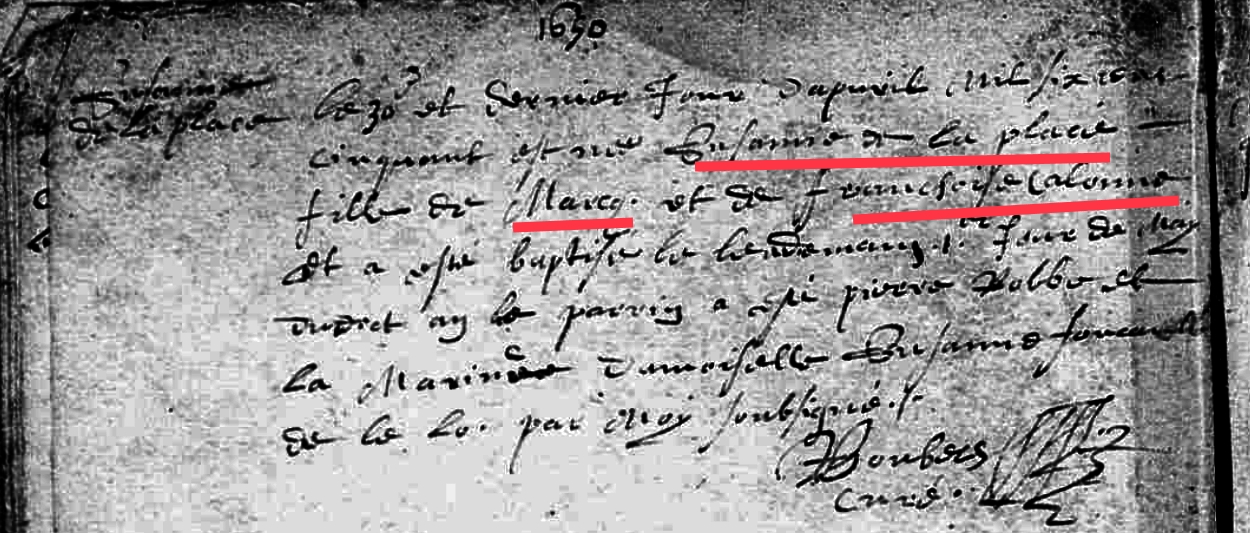 1650
Susanne
de la place
le 30e et dernier Jour d'apvril Mil six cen
cinquant est née Susanne de la place
fille de Marcq. et de franchoise Calonne
Et a esté baptisée le lendemain 1er Jour de May
dudict an le parrin a esté pierre Robbe et
la Marinne Damoiselle Susanne
de le par Moy soubsigné
Boubers
curé